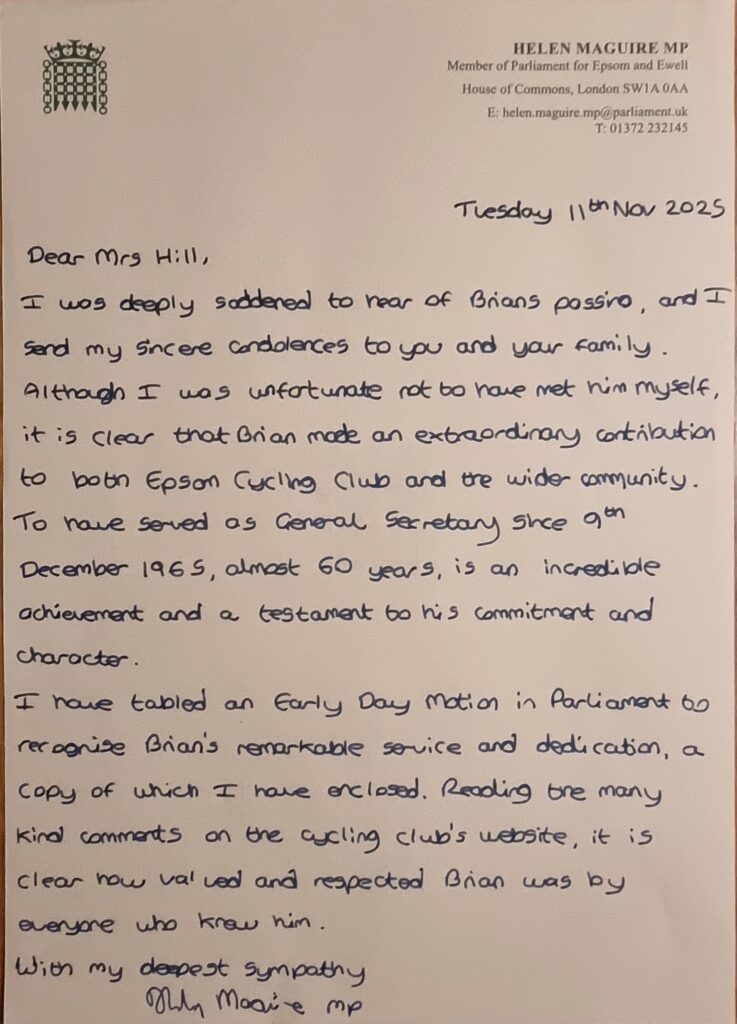 HELEN MAGUIRE MP
Member of Parliament for Epsom and Ewell
House of Commons, London SW1A 0AA
E: helen.maguire.mp@parliament.uk
T: 01372 232145
Tuesday 11th Nov 2025
Dear Mrs Hill,
I was deeply saddened to hear of Brians passing, and I
send my sincere condolences to you and your family.
Although I was unfortunate not to have met him myself,
it is clear that Brian made an extraordinary contribution
to both Epsom Cycling Club and the wider community.
To have served as General Secretary since 9th
December 1965, almost 60 years, is an incredible
achievement and a testament to his commitment and
character.
I have tabled an Early Day Motion in Parliament to
recognise Brian's remarkable service and dedication, a
copy of which I have enclosed. Reading the many
kind comments on the cycling club's website, it is
clear how valued and respected Brian was by
everyone who knew him.
With my deepest sympathy
Helen Maguire MP